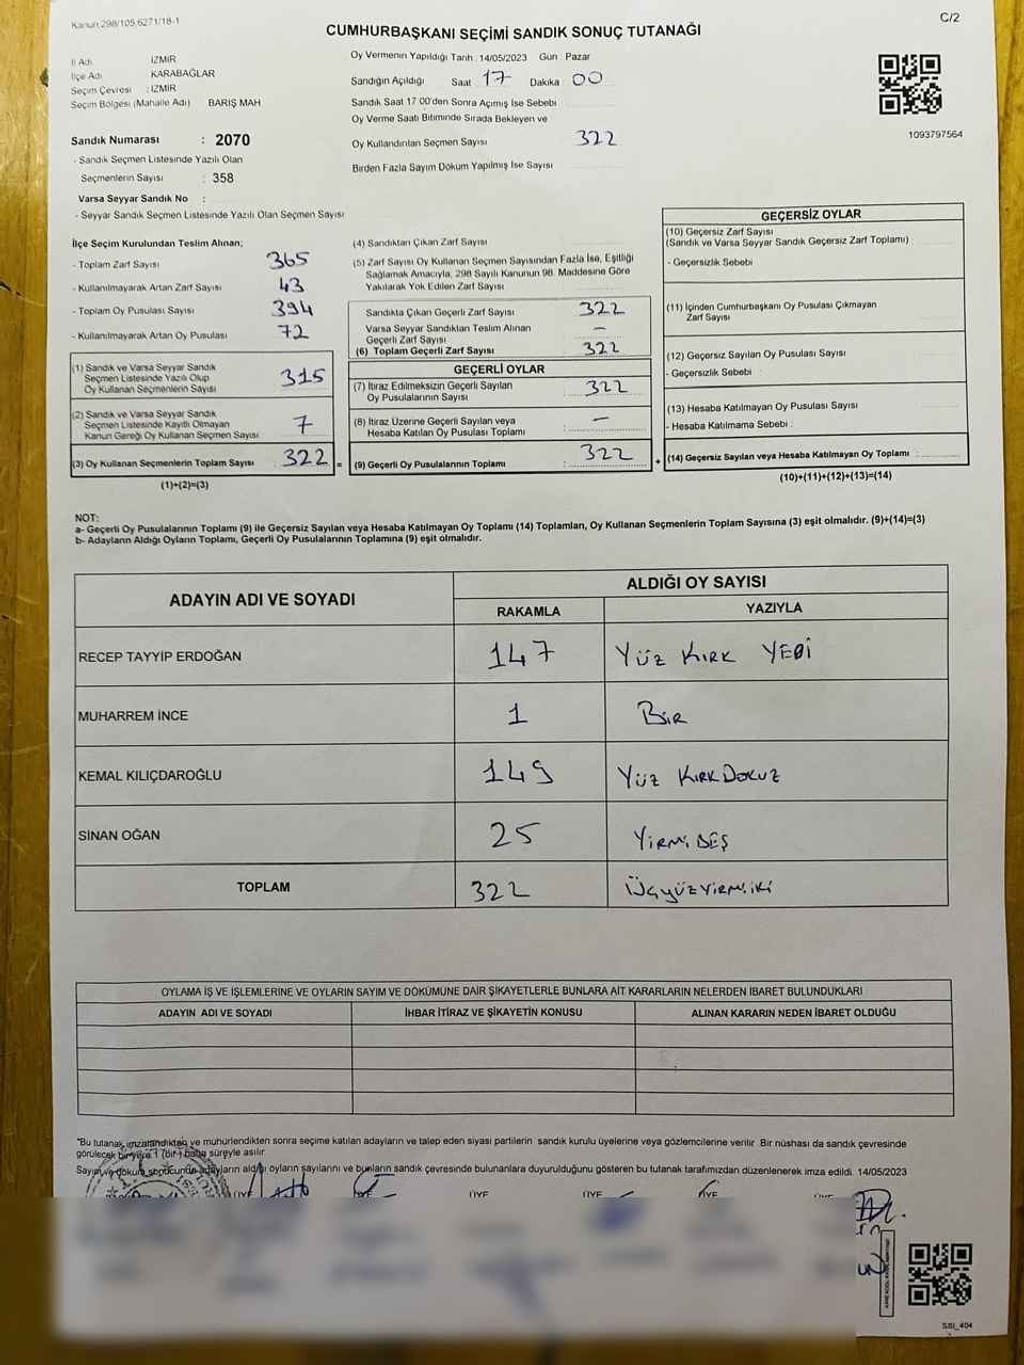 Kanun 298/105,6271/18-1
C/2
CUMHURBAŞKANI SEÇİMİ SANDIK SONUÇ TUTANAĞI
İl Adı İZMİR
İlçe Adı KARABAĞLAR
Seçim Çevresi : İZMİR
Seçim Bölgesi (Mahalle Adı) BARIŞ MAH
Sandık Numarası : 2070
- Sandık Seçmen Listesinde Yazılı Olan
Seçmenlerin Sayısı : 358
Varsa Seyyar Sandık No :
- Seyyar Sandık Seçmen Listesinde Yazılı Olan Seçmen Sayısı
Oy Vermenin Yapıldığı Tarih : 14/05/2023 Gün : Pazar
Sandığın Açıldığı Saat 17 Dakika 00
Sandık Saat 17 00'den Sonra Açımış İse Sebebi
Oy Verme Saati Bitiminde Sırada Bekleyen ve
Oy Kullandırılan Seçmen Sayısı 322
Birden Fazla Sayım Döküm Yapılmış İse Sayısı
1093797564
İlçe Seçim Kurulundan Teslim Alınan;
- Toplam Zarf Sayısı 365
- Kullanılmayarak Artan Zarf Sayısı 43
- Toplam Oy Pusulası Sayısı 394
- Kullanılmayarak Artan Oy Pusulası 72
(1) Sandık ve Varsa Seyyar Sandık
Seçmen Listesinde Yazılı Olup
Oy Kullanan Seçmenlerin Sayısı 315
(2) Sandık ve Varsa Seyyar Sandık
Seçmen Listesinde Kayıtlı Olmayan
Kanun Gereği Oy Kullanan Seçmen Sayısı 7
(3) Oy Kullanan Seçmenlerin Toplam Sayısı 322 =
(1)+(2)=(3)
(4) Sandıktan Çıkan Zarf Sayısı
(5) Zarf Sayısı Oy Kullanan Seçmen Sayısından Fazla İse, Eşitliği
Sağlamak Amacıyla, 298 Sayılı Kanunun 98. Maddesine Göre
Yakılarak Yok Edilen Zarf Sayısı
Sandıkta Çıkan Geçerli Zarf Sayısı : 322
Varsa Seyyar Sandıktan Teslim Alınan
Geçerli Zarf Sayısı –
(6) Toplam Geçerli Zarf Sayısı 322
GEÇERLİ OYLAR
(7) İtiraz Edilmeksizin Geçerli Sayılan
Oy Pusulalarının Sayısı : 322
(8) İtiraz Üzerine Geçerli Sayılan veya
Hesaba Katılan Oy Pusulası Toplamı : –
(9) Geçerli Oy Pusulalarının Toplamı : 322 +
GEÇERSİZ OYLAR
(10) Geçersiz Zarf Sayısı
(Sandık ve Varsa Seyyar Sandık Geçersiz Zarf Toplamı) :
- Geçersizlik Sebebi
(11) İçinden Cumhurbaşkanı Oy Pusulası Çıkmayan
Zarf Sayısı
(12) Geçersiz Sayılan Oy Pusulası Sayısı
- Geçersizlik Sebebi :
(13) Hesaba Katılmayan Oy Pusulası Sayısı
- Hesaba Katılmama Sebebi :
(14) Geçersiz Sayılan veya Hesaba Katılmayan Oy Toplamı :
(10)+(11)+(12)+(13)=(14)
NOT:
a- Geçerli Oy Pusulalarının Toplamı (9) ile Geçersiz Sayılan veya Hesaba Katılmayan Oy Toplamı (14) Toplamları, Oy Kullanan Seçmenlerin Toplam Sayısına (3) eşit olmalıdır. (9)+(14)=(3)
b- Adayların Aldığı Oyların Toplamı, Geçerli Oy Pusulalarının Toplamına (9) eşit olmalıdır.
ADAYIN ADI VE SOYADI ALDIĞI OY SAYISI
RAKAMLA YAZIYLA
RECEP TAYYİP ERDOĞAN 147 YÜZ KIRK YEDİ
MUHARREM İNCE 1 BİR
KEMAL KILIÇDAROĞLU 149 YÜZ KIRK DOKUZ
SİNAN OĞAN 25 YİRMİ BEŞ
TOPLAM 322 ÜÇYÜZYİRMİİKİ
OYLAMA İŞ VE İŞLEMLERİNE VE OYLARIN SAYIM VE DÖKÜMÜNE DAİR ŞİKAYETLERLE BUNLARA AİT KARARLARIN NELERDEN İBARET BULUNDUKLARI
ADAYIN ADI VE SOYADI İHBAR İTİRAZ VE ŞİKAYETİN KONUSU ALINAN KARARIN NEDEN İBARET OLDUĞU
*Bu tutanak, imzalandıktan ve mühürlendikten sonra seçime katılan adayların ve talep eden siyasi partilerin sandık kurulu üyelerine veya gözlemcilerine verilir. Bir nüshası da sandık çevresinde
görülecek bir yere 1 (bir) hafta süreyle asılır.
Sayım ve döküm sonucunda adayların aldığı oyların sayılarını ve bunların sandık çevresinde bulunanlara duyurulduğunu gösteren bu tutanak tarafımızdan düzenlenerek imza edildi. 14/05/2023
ÜYE ÜYE ÜYE ÜYE ÜYE
SSI_404